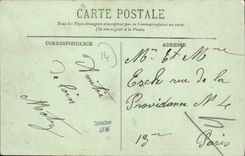 CARTE POSTALE
Tous les Pays étrangers n'acceptent pas la Correspondance au recto
(Se renseigner à la Poste)
CORRESPONDANCE
ADRESSE
14
Amitié
de loin
Mr Et Mme
Esch rue de la
Providance No 4
13me
Paris
Collection
J.F.M.